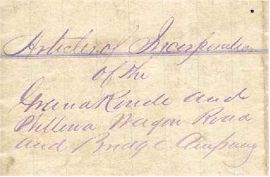 Articles of Incorporation
of the
Grand Ronde and
Wagon Road
and Bridge Company